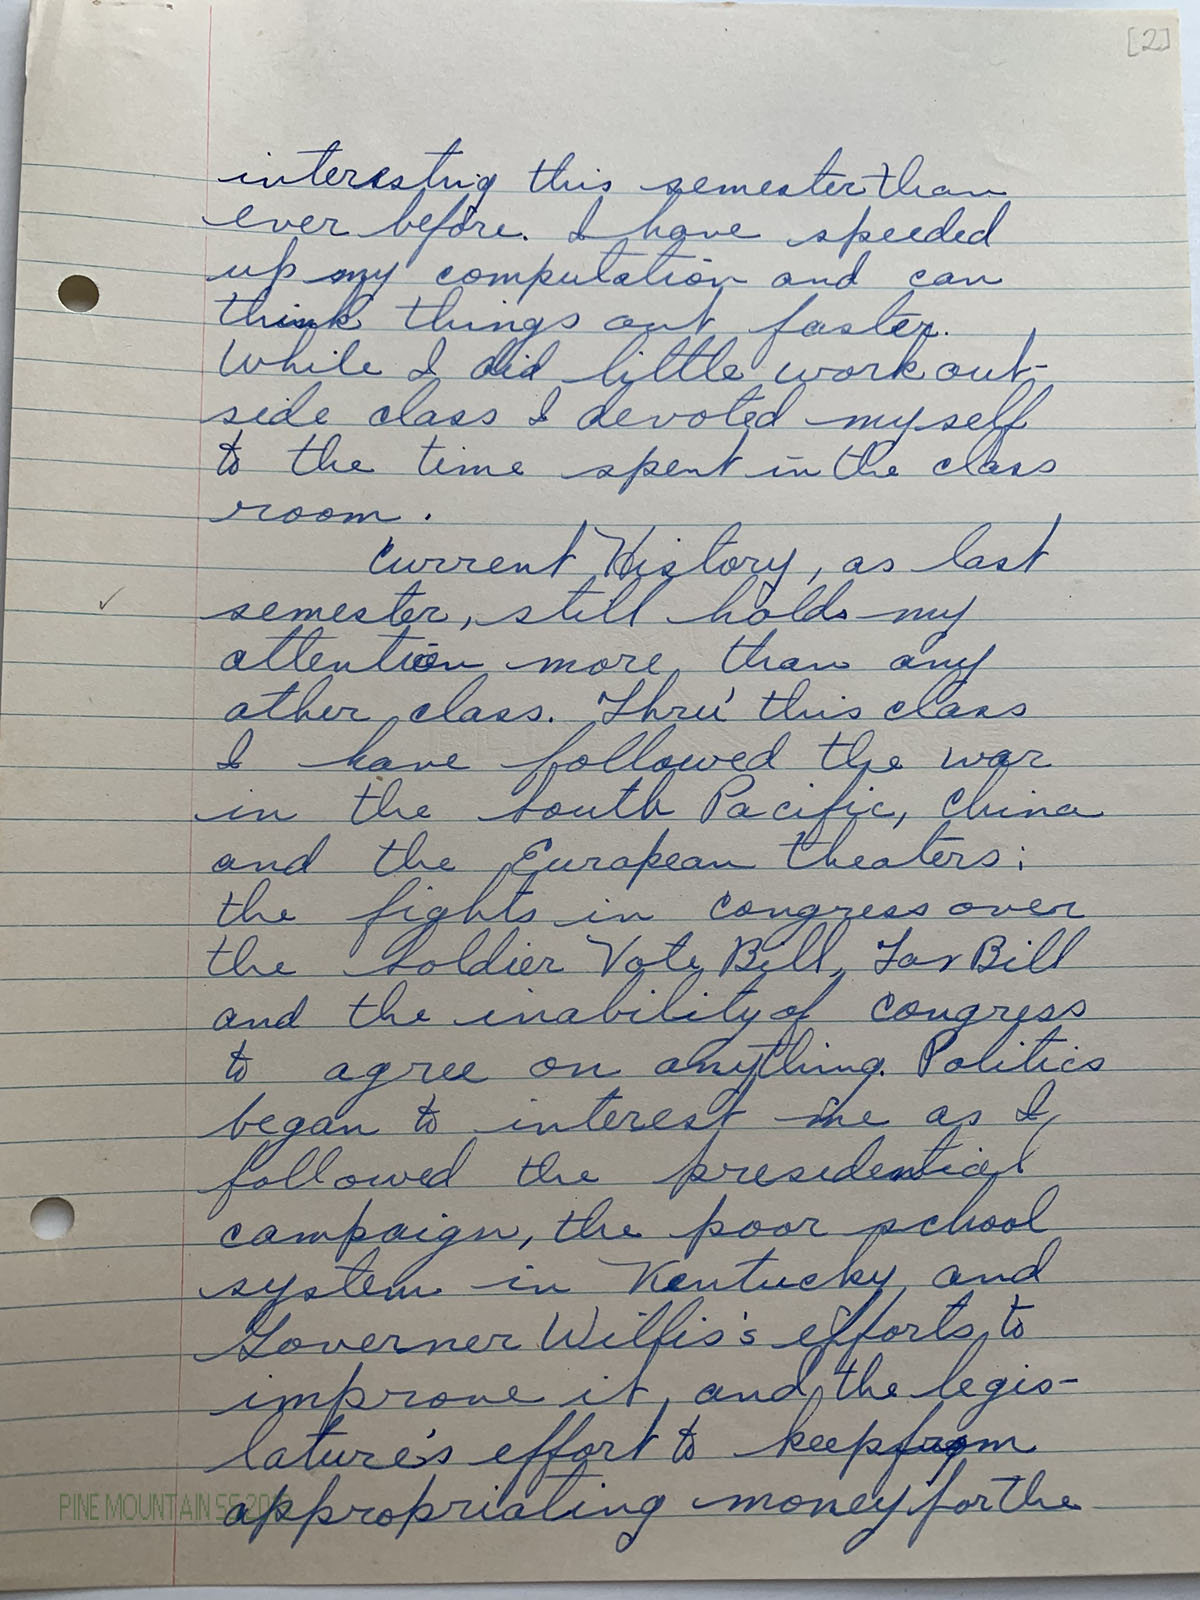 [2]
interesting this semester than
ever before. I have speeded
up my computation and can
think things out faster.
While I did little work out-
side class I devoted myself
to the time spent in the class
room.
Current History, as last
semester, still holds my
attention more than any
other class. Thru' this class
I have followed the war
in the South Pacific, China
and the European theaters;
the fights in congress over
the Soldier Vote Bill, Tax Bill
and the inability of congress
to agree on anything. Politics
began to interest me as I
followed the presidential
campaign, the poor school
system in Kentucky and
Governer Willis's efforts to
improve it, and the legis-
lature's effort to keep from
appropriating money for the
PINE MOUNTAIN SS